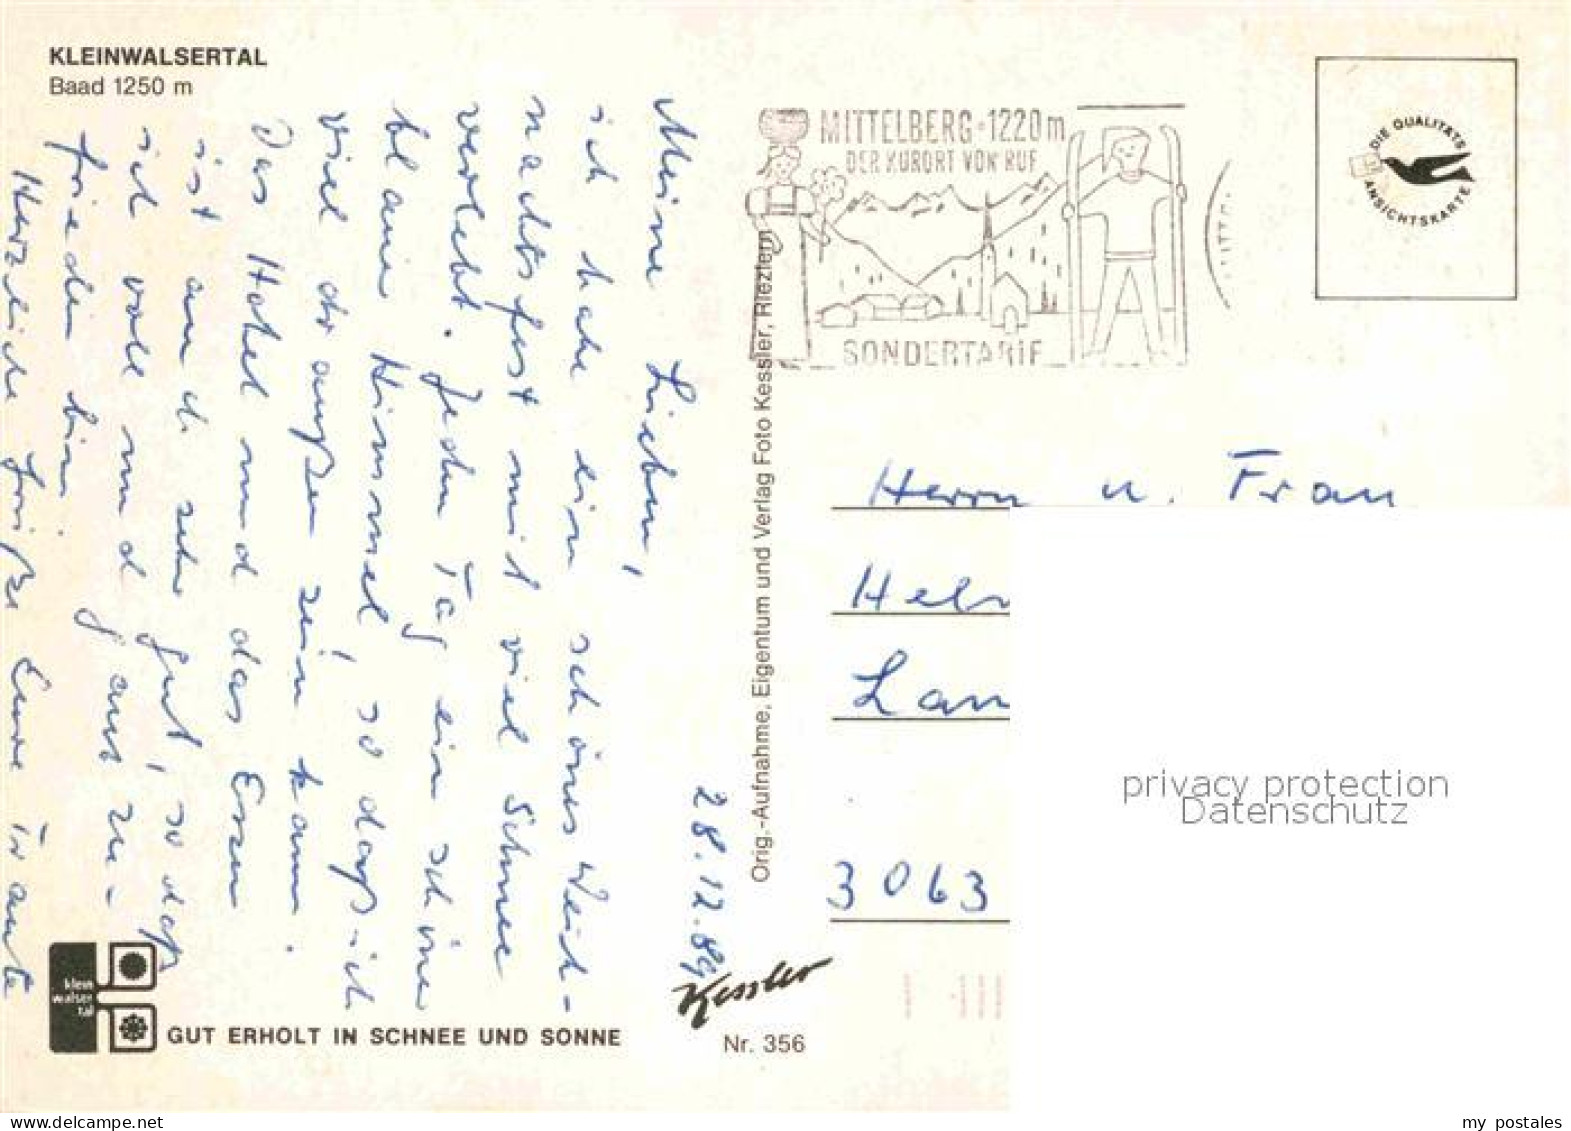 KLEINWALSERTAL
Baad 1250 m
28.12.89
Meine Lieben,
ich habe ein schönes Weih-
nachtsfest mit viel Schnee
verlebt. Jeden Tag ein schöner
blauer Himmel, so daß ich
viel draußen sein kann.
Das Hotel und das Essen
ist auch sehr gut, so daß
ich voll und ganz zu-
frieden bin.
Herzliche Grüße Eure Traute
GUT ERHOLT IN SCHNEE UND SONNE
klein
walser
tal
Kessler
Nr. 356
Orig.-Aufnahme, Eigentum und Verlag Foto Kessler, Riezlern
MITTELBERG 1220m
DER KURORT VON RUF
SONDERTARIF
DIE QUALITÄTS
ANSICHTSKARTE
Herrn u. Frau
Hel
Lan
3063
privacy protection
Datenschutz
delcampe.net
my_postales